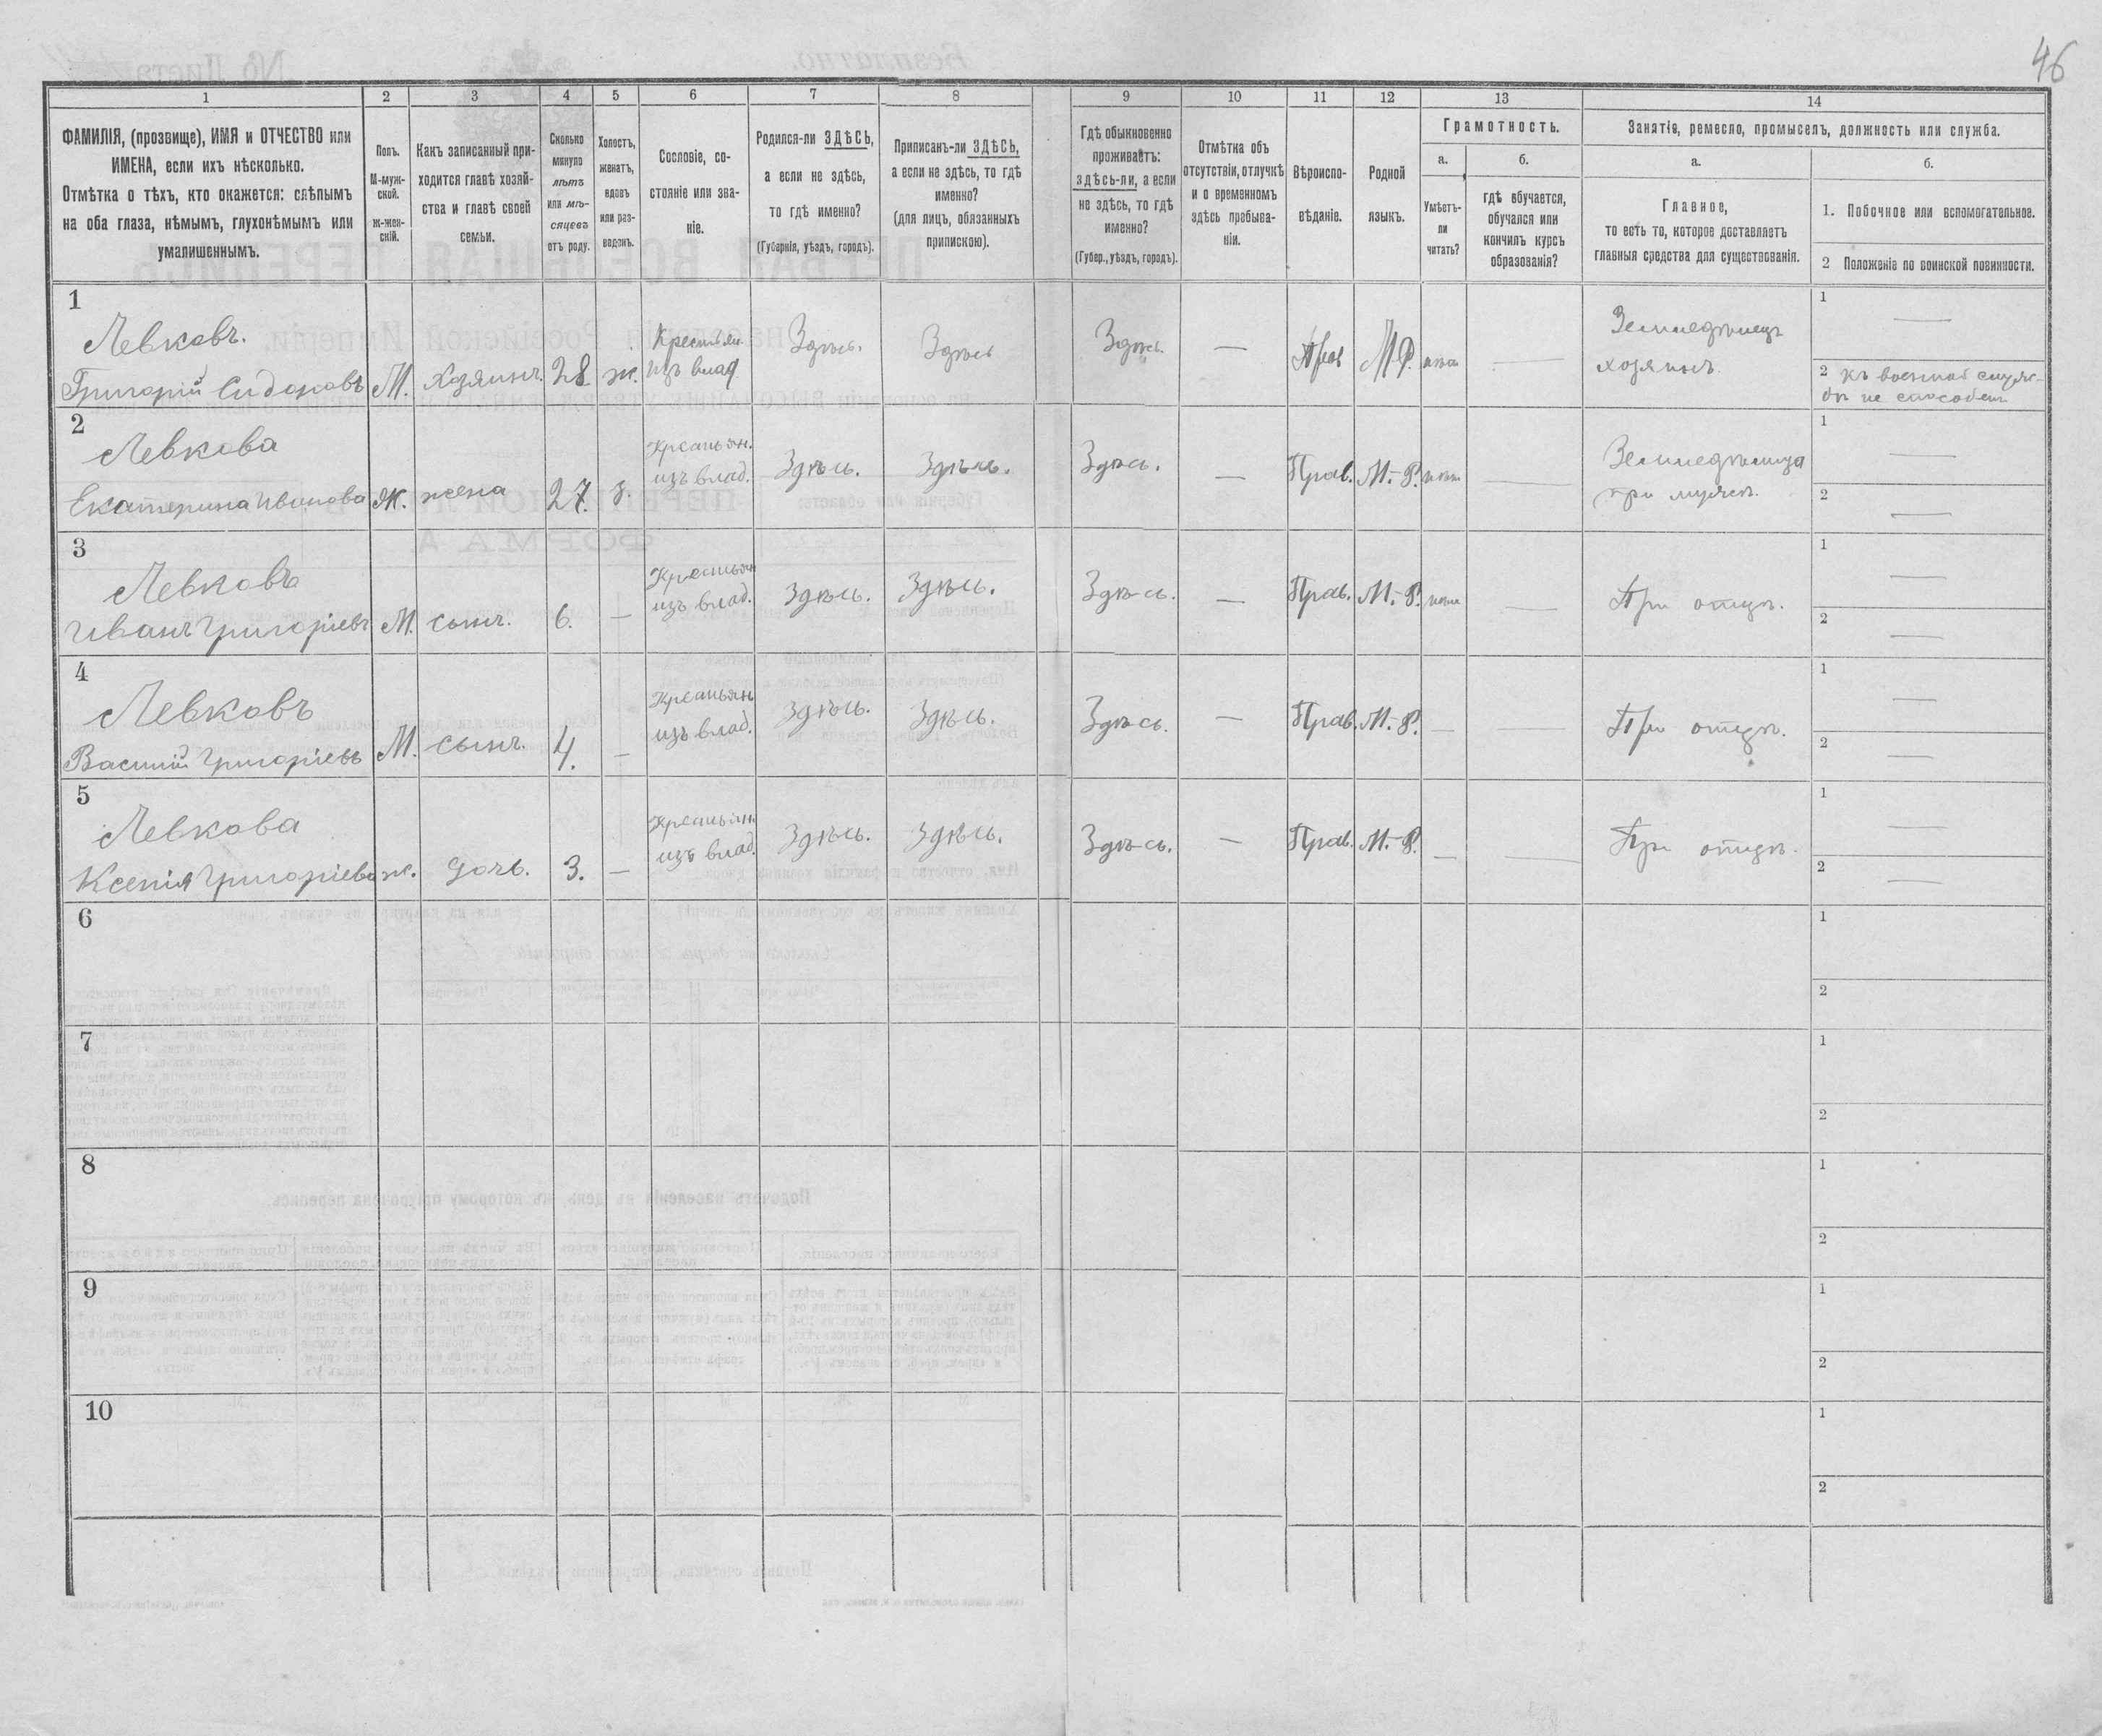 46
1 2 3 4 5 6 7 8 9 10 11 12 13 14
ФАМИЛІЯ, (прозвище), ИМЯ и ОТЧЕСТВО или
ИМЕНА, если ихъ нѣсколько.
Отмѣтка о тѣхъ, кто окажется: слѣпымъ
на оба глаза, нѣмымъ, глухонѣмымъ или
умалишеннымъ.
Полъ.
М-муж-
ской.
ж-жен-
скій.
Какъ записанный при-
ходится главѣ хозяй-
ства и главѣ своей
семьи.
Сколько
минуло
лѣтъ
или мѣ-
сяцевъ
отъ роду.
Холостъ,
женатъ,
вдовъ
или раз-
веденъ.
Сословіе, со-
стояніе или зва-
ніе.
Родился-ли ЗДѢСЬ,
а если не здѣсь,
то гдѣ именно?
(Губернія, уѣздъ, городъ).
Приписанъ-ли ЗДѢСЬ,
а если не здѣсь, то гдѣ
именно?
(для лицъ, обязанныхъ
припискою).
Гдѣ обыкновенно
проживаетъ:
здѣсь-ли, а если
не здѣсь, то гдѣ
именно?
(Губер., уѣздъ, городъ).
Отмѣтка объ
отсутствіи, отлучкѣ
и о временномъ
здѣсь пребыва-
ніи.
Вѣроиспо-
вѣданіе.
Родной
языкъ.
Грамотность.
а.
Умѣетъ-
ли
читать?
б.
гдѣ обучается,
обучался или
кончилъ курсъ
образованія?
Занятіе, ремесло, промыселъ, должность или служба.
а.
Главное,
то есть то, которое доставляетъ
главныя средства для существованія.
б.
1. Побочное или вспомогательное.
2 Положеніе по воинской повинности.
1
Левковъ.
Григорій Сидоровъ М. Хозяинъ. 28 ж. Крестьян. изъ влад. Здѣсь. Здѣсь Здѣсь. — Прав М.Р. — Земледѣлецъ хозяинъ.
1 —
2 къ военной служ-
бѣ не способенъ
2
Левкова
Екатерина Иванова Ж. жена 27. з. Крестьян. изъ влад. Здѣсь. Здѣсь. Здѣсь. — Прав. М.-Р. — Земледѣлица при мужѣ.
1 —
2 —
3
Левковъ
Иванъ Григоріевъ М. сынъ. 6. — Крестьян изъ влад. Здѣсь. Здѣсь. Здѣсь. — Прав. М.-Р. — При отцѣ.
1 —
2 —
4
Левковъ
Василій Григоріевъ М. сынъ. 4. — Крестьян изъ влад. Здѣсь. Здѣсь. Здѣсь. — Прав. М.-Р. — — При отцѣ.
1 —
2 —
5
Левкова
Ксенія Григоріева ж. дочь. 3. — Крестьян. изъ влад. Здѣсь. Здѣсь. Здѣсь. — Прав. М.-Р. — — При отцѣ.
1 —
2 —
6
1
2
7
1
2
8
1
2
9
1
2
10
1
2